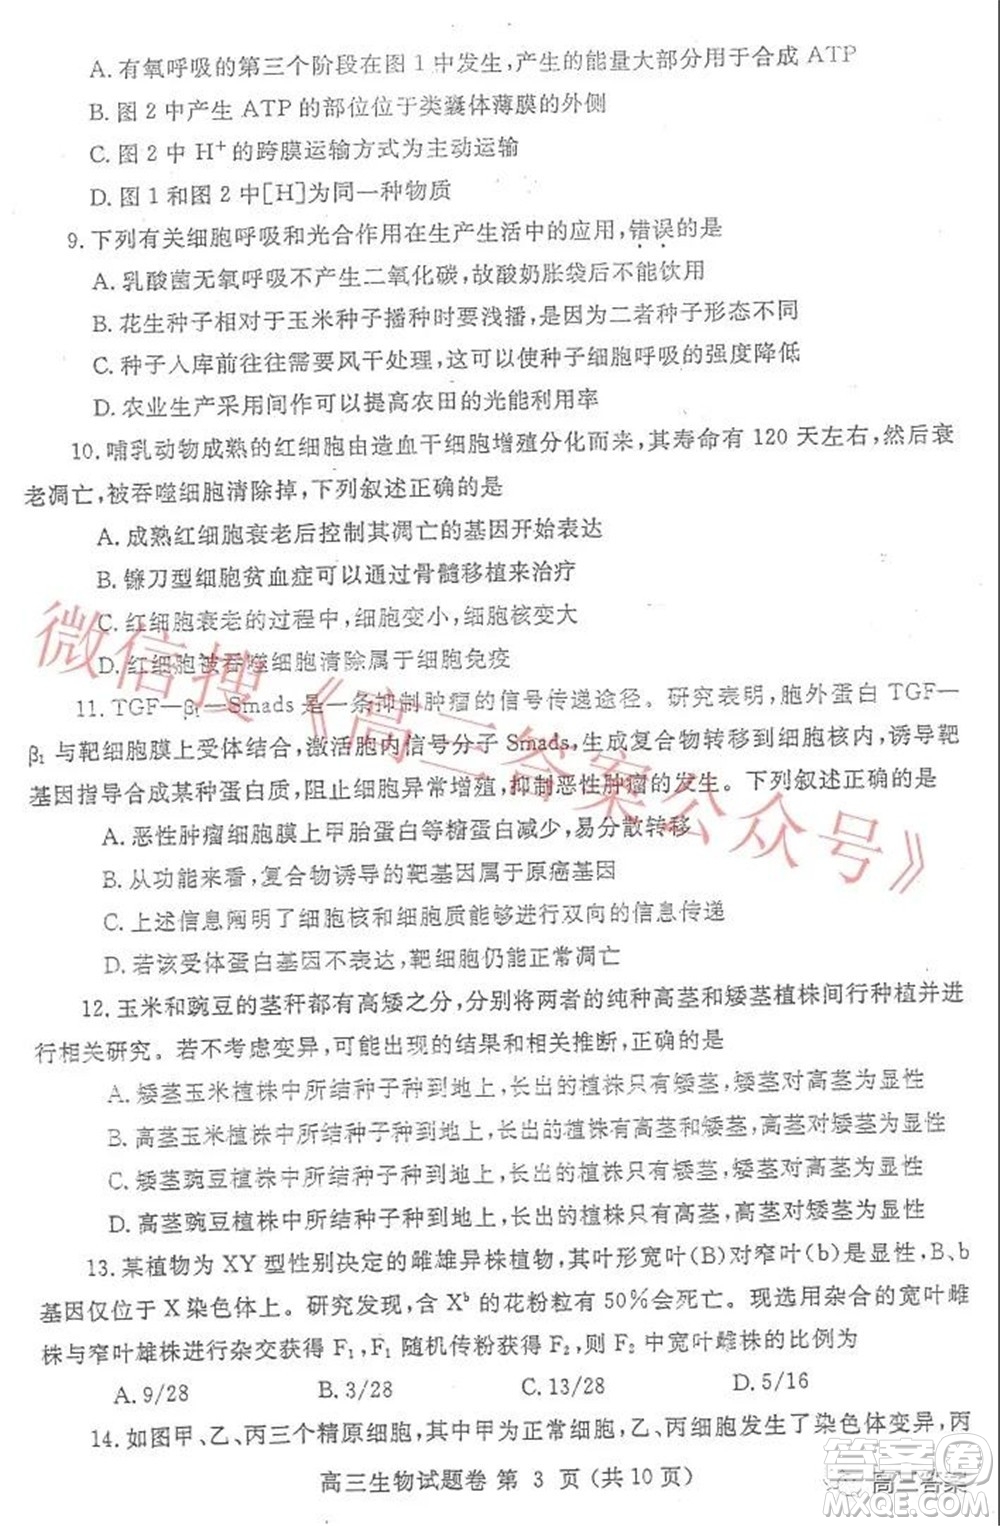 A. 有氧呼吸的第三个阶段在图 1 中发生,产生的能量大部分用于合成 ATP
B. 图 2 中产生 ATP 的部位位于类囊体薄膜的外侧
C. 图 2 中 H⁺ 的跨膜运输方式为主动运输
D. 图 1 和图 2 中[H]为同一种物质
9. 下列有关细胞呼吸和光合作用在生产生活中的应用,错误的是
A. 乳酸菌无氧呼吸不产生二氧化碳,故酸奶胀袋后不能饮用
B. 花生种子相对于玉米种子播种时要浅播,是因为二者种子形态不同
C. 种子入库前往往需要风干处理,这可以使种子细胞呼吸的强度降低
D. 农业生产采用间作可以提高农田的光能利用率
10. 哺乳动物成熟的红细胞由造血干细胞增殖分化而来,其寿命有 120 天左右,然后衰
老凋亡,被吞噬细胞清除掉,下列叙述正确的是
A. 成熟红细胞衰老后控制其凋亡的基因开始表达
B. 镰刀型细胞贫血症可以通过骨髓移植来治疗
C. 红细胞衰老的过程中,细胞变小,细胞核变大
D. 红细胞被吞噬细胞清除属于细胞免疫
11. TGF—β₁—Smads 是一条抑制肿瘤的信号传递途径。研究表明,胞外蛋白 TGF—
β₁ 与靶细胞膜上受体结合,激活胞内信号分子 Smads,生成复合物转移到细胞核内,诱导靶
基因指导合成某种蛋白质,阻止细胞异常增殖,抑制恶性肿瘤的发生。下列叙述正确的是
A. 恶性肿瘤细胞膜上甲胎蛋白等糖蛋白减少,易分散转移
B. 从功能来看,复合物诱导的靶基因属于原癌基因
C. 上述信息阐明了细胞核和细胞质能够进行双向的信息传递
D. 若该受体蛋白基因不表达,靶细胞仍能正常凋亡
12. 玉米和豌豆的茎秆都有高矮之分,分别将两者的纯种高茎和矮茎植株间行种植并进
行相关研究。若不考虑变异,可能出现的结果和相关推断,正确的是
A. 矮茎玉米植株中所结种子种到地上,长出的植株只有矮茎,矮茎对高茎为显性
B. 高茎玉米植株中所结种子种到地上,长出的植株有高茎和矮茎,矮茎为显性
C. 矮茎豌豆植株中所结种子种到地上,长出的植株只有矮茎,矮茎对高茎为显性
D. 高茎豌豆植株中所结种子种到地上,长出的植株有高茎和矮茎,高茎为显性
13. 某植物为 XY 型性别决定的雌雄异株植物,其叶形宽叶(B)对窄叶(b)是显性,B、b
基因仅位于 X 染色体上。研究发现,含 Xᵇ 的花粉粒有 50%会死亡。现选用杂合的宽叶雌
株与窄叶雄株进行杂交获得 F₁,F₁ 随机传粉获得 F₂,则 F₂ 中宽叶雌株的比例为
A. 9/28 B. 3/28 C. 13/28 D. 5/16
14. 如图甲、乙、丙三个精原细胞,其中甲为正常细胞,乙、丙细胞发生了染色体变异,丙
高三生物试题卷 第 3 页(共 10 页)
微信搜《高三答案公众号》
高三答案
答案圈
MXQE.COM